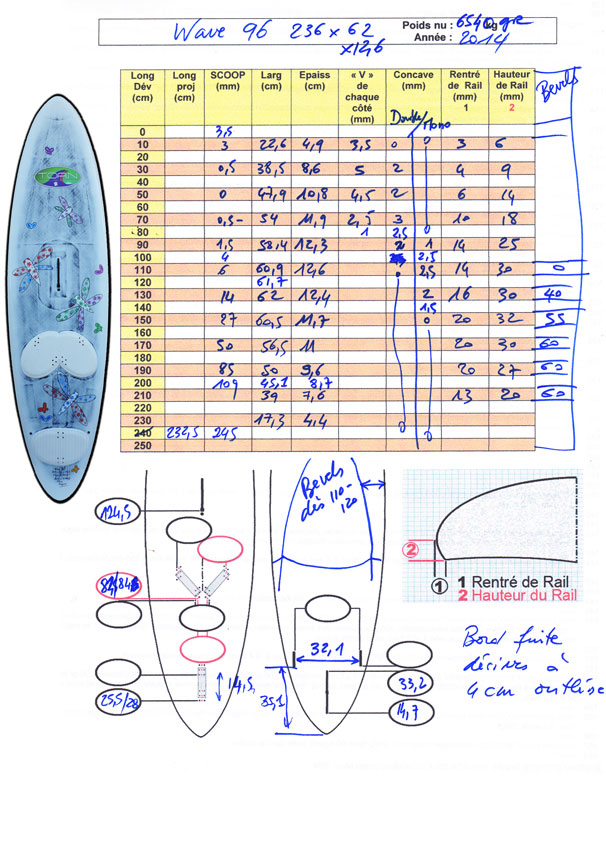 Wave 96 236 x 62 x 12,6
Poids nu : 6540 gre kg
Année : 2014
Long Dév (cm) Long proj (cm) SCOOP (mm) Larg (cm) Epaiss (cm) « V » de chaque côté (mm) Concave (mm) Double/Mono Rentré de Rail (mm) 1 Hauteur de Rail (mm) 2 Bevels
0 3,5
10 3 22,6 4,9 3,5 0 0 3 6
20
30 0,5 38,5 8,6 5 2 4 9
40
50 0 47,9 10,8 4,5 2 6 14
60
70 0,5- 54 11,9 2,5 3 10 18
80 1 2,5 0
90 1,5 58,4 12,3 2 1 14 25
100 4 2,5
110 6 60,9 12,6 0 2,5 14 30 0
120 61,7
130 14 62 12,4 2 16 30 40
140 1,5
150 27 60,5 11,7 0 20 32 55
160
170 50 56,5 11 20 30 60
180
190 85 50 9,6 20 27 60
200 109 45,1 8,7
210 39 7,6 13 20 60
220
230 17,3 4,4 0
240 232,5 245 0
250
Bevels dès 110-120
124,5
84,5
25,5/28
14,5
32,1
35,1
33,2
14,7
2
1
1 Rentré de Rail
2 Hauteur du Rail
Bord
à
4 cm